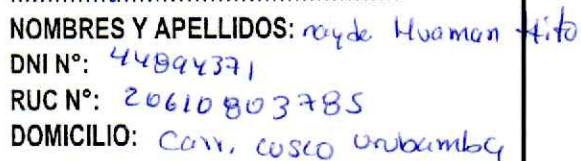 NOMBRES Y APELLIDOS: nayde Huaman Hito
DNI N°: 44894371
RUC N°: 20610803785
DOMICILIO: Carr. cusco Urubamba